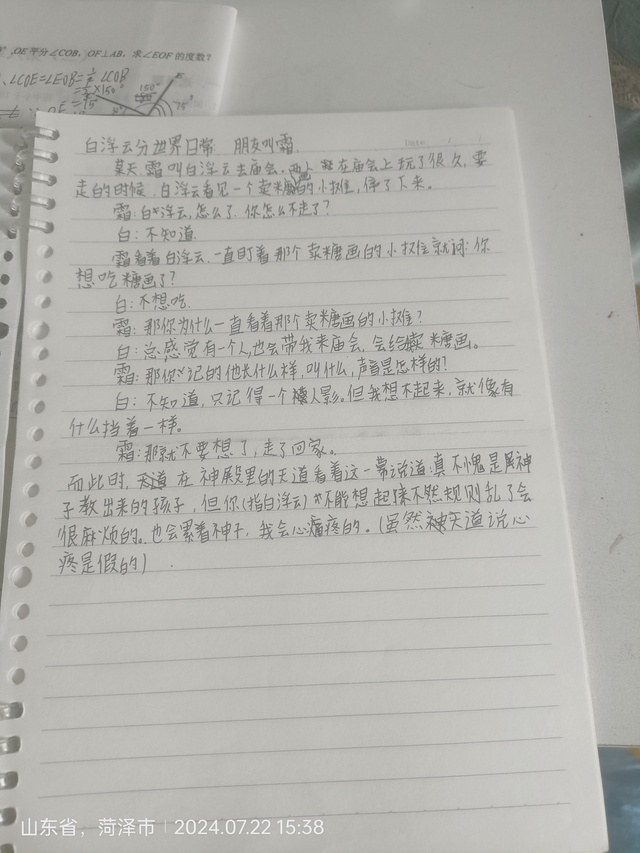 ,OE平分∠COB、OF⊥AB,求∠EOF的度数?
∠COE=∠EOB=½∠COB
白浮云分世界日常 朋友叫霜
某天,霜叫白浮云去庙会,两人在庙会上玩了很久,要
走的时候,白浮云看见一个卖糖画的小摊,停了下来。
霜:白浮云,怎么了,你怎么不走了?
白:不知道
霜看着白浮云,一直盯着那个卖糖画的小摊位就问:你
想吃糖画了?
白:不想吃
霜:那你为什么一直看着那个卖糖画的小摊?
白:总感觉有一个人,也会带我来庙会,会给我买糖画。
霜:那你记的他长什么样,叫什么,声音是怎样的?
白:不知道,只记得一个模人影。但我想不起来,就像有
什么挡着一样。
霜:那就不要想了,走了回家。
而此时,在神殿里的天道看着这一幕说道:真不愧是神
子教出来的孩子,但你(指白浮云)不能想起来不然规则乱了会
很麻烦的。也会累着神子,我会心疼的。(虽然天道说心
疼是假的)
山东省,菏泽市 | 2024.07.22 15:38